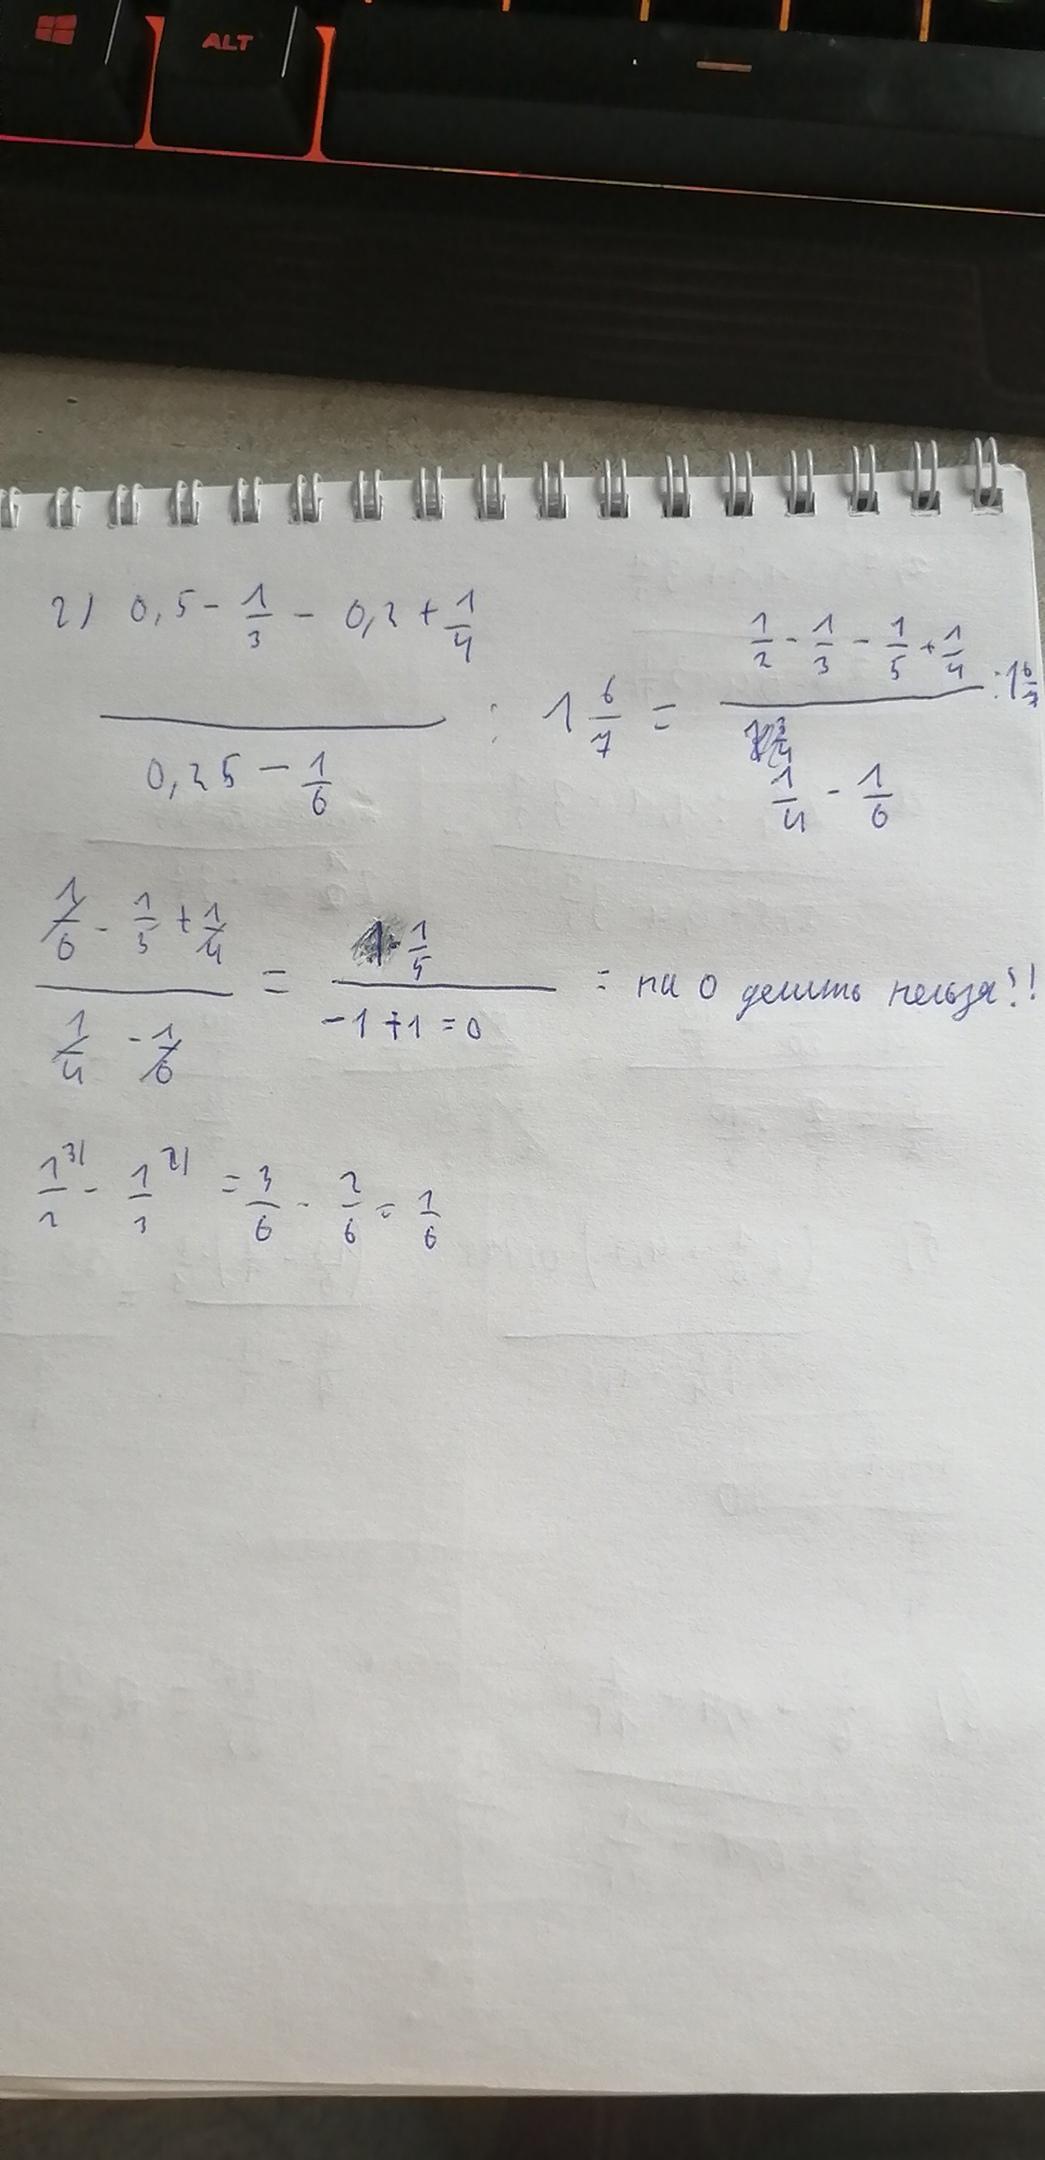 ALT
2) 0,5 - 1/3 - 0,2 + 1/4
0,25 - 1/6
: 1 6/7 =
1/2 - 1/3 - 1/5 + 1/4
: 1 6/7
1/4 - 1/6
1/6 - 1/5 + 1/4
1/4 - 1/6
=
1/5
-1+1=0
= на 0 делить нельзя!!
1/2 3) - 1/3 2) = 3/6 - 2/6 = 1/6